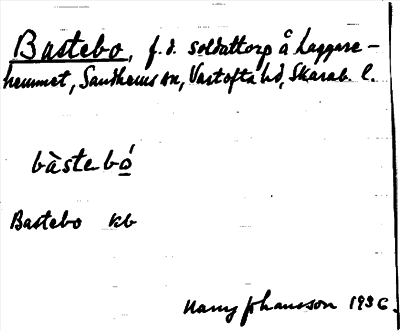 Bastebo, f.d. soldattorp å Laggare-
hemmet, Sandhems sn, Vartofta hd, Skarab. l.
bàstebó
Bastebo kb
Harry Johansson 1936.